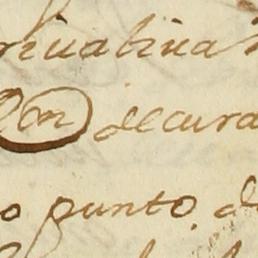 rivativa
Con de cura
o punto. d